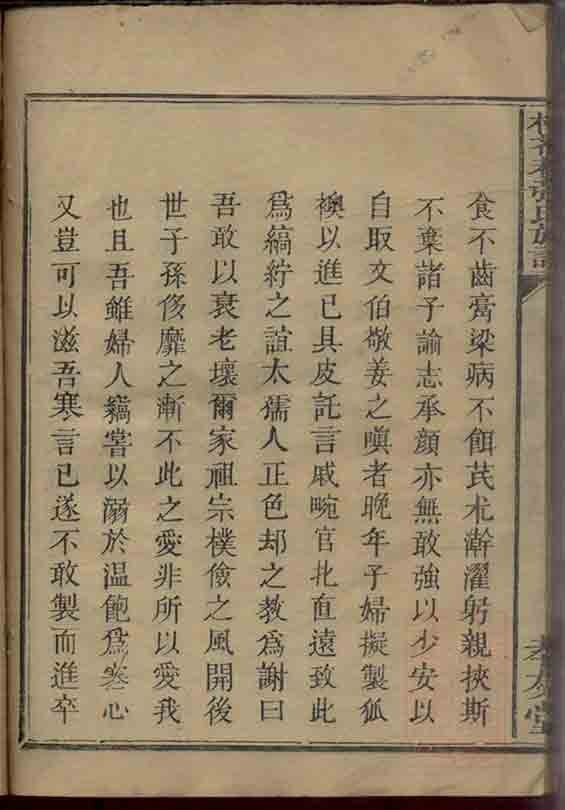 食不齒膏梁病不餌芪朮澣濯躬親挾斯
不棄諸子諭志承顏亦無敢強以少安以
自取文伯敬姜之嗔者晚年子婦擬製狐
襖以進已具皮託言戚畹官北直遠致此
爲縞紵之誼太孺人正色却之教爲謝曰
吾敢以衰老壞爾家祖宗樸儉之風開後
世子孫侈靡之漸不此之愛非所以愛我
也且吾雖婦人竊嘗以溺於温飽爲寒心
又豈可以滋吾寒言已遂不敢製而進卒
張氏族譜
孝友堂